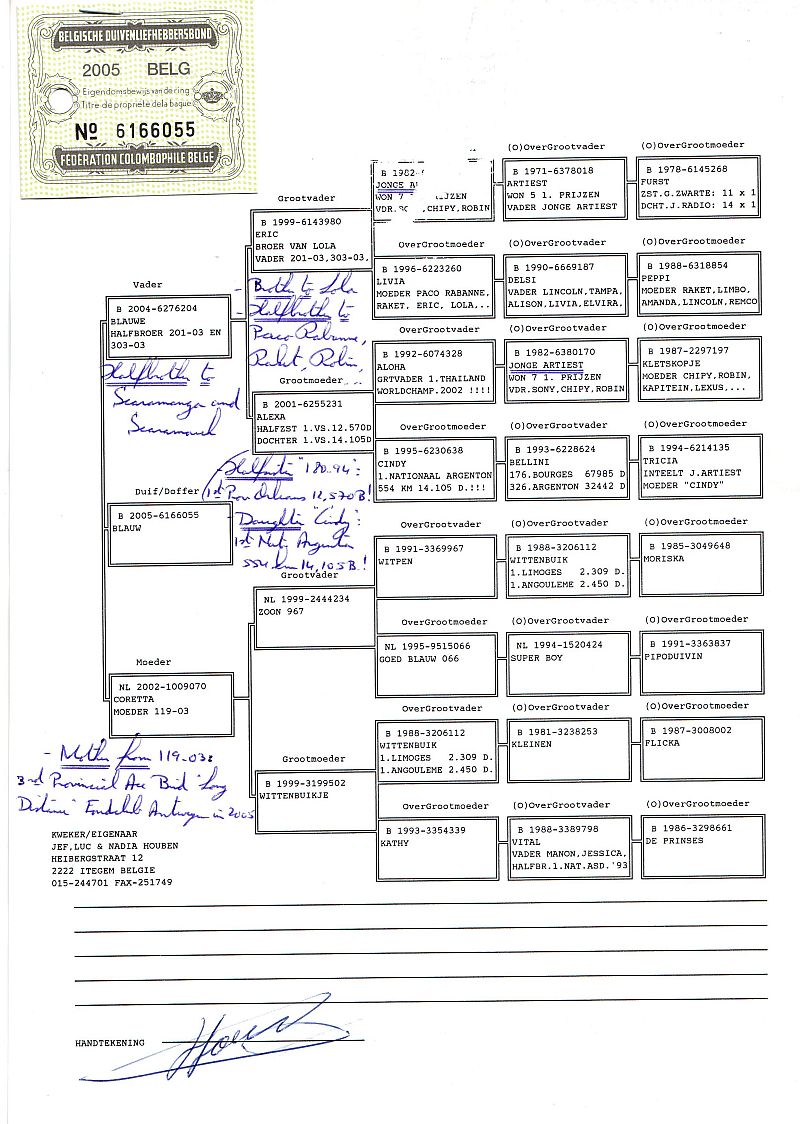 BELGISCHE DUIVENLIEFHEBBERSBOND
2005 BELG
Eigendomsbewijs van de ring
Titre de propriété de la bague
No 6166055
FÉDÉRATION COLOMBOPHILE BELGE
Vader
B 2004-6276204
BLAUWE
HALFBROER 201-03 EN
303-03
Halfbrother to
Scaramanga and
Scaramouch
Duif/Doffer
B 2005-6166055
BLAUW
Moeder
NL 2002-1009070
CORETTA
MOEDER 119-03
- Mother from 119-03:
3rd Provincial Ace Bird "Long
Distance" Fondclub Antwerpen in 2005
Grootvader
B 1999-6143980
ERIC
BROER VAN LOLA
VADER 201-03,303-03,
- Brother to Lola
- Halfbrother to
Paco Rabanne,
Raket, Robin,
...
Grootmoeder
B 2001-6255231
ALEXA
HALFZST 1.VS.12.570D
DOCHTER 1.VS.14.105D
- Halfsister "180-94":
1st Prov Orleans 12,570B!
- Daughter "Cindy":
1st Nat. Argenton
554 km 14,105B.!
Grootvader
NL 1999-2444234
ZOON 967
Grootmoeder
B 1999-3199502
WITTENBUIKJE
B 1982-
JONGE A
WON 7
VDR. ,CHIPY,ROBIN
IJZEN
OverGrootmoeder
B 1996-6223260
LIVIA
MOEDER PACO RABANNE,
RAKET, ERIC, LOLA,..
OverGrootvader
B 1992-6074328
ALOHA
GRTVADER 1.THAILAND
WORLDCHAMP.2002 !!!!
OverGrootmoeder
B 1995-6230638
CINDY
1.NATIONAAL ARGENTON
554 KM 14.105 D.!!!
OverGrootvader
B 1991-3369967
WITPEN
OverGrootmoeder
NL 1995-9515066
GOED BLAUW 066
OverGrootvader
B 1988-3206112
WITTENBUIK
1.LIMOGES 2.309 D.
1.ANGOULEME 2.450 D.
OverGrootmoeder
B 1993-3354339
KATHY
(O)OverGrootvader
B 1971-6378018
ARTIEST
WON 5 1. PRIJZEN
VADER JONGE ARTIEST
(O)OverGrootvader
B 1990-6669187
DELSI
VADER LINCOLN,TAMPA,
ALISON,LIVIA,ELVIRA,
(O)OverGrootvader
B 1982-6380170
JONGE ARTIEST
WON 7 1. PRIJZEN
VDR.SONY,CHIPY,ROBIN
(O)OverGrootvader
B 1993-6228624
BELLINI
176.BOURGES 67985 D
326.ARGENTON 32442 D
(O)OverGrootvader
B 1988-3206112
WITTENBUIK
1.LIMOGES 2.309 D.
1.ANGOULEME 2.450 D.
(O)OverGrootvader
NL 1994-1520424
SUPER BOY
(O)OverGrootvader
B 1981-3238253
KLEINEN
(O)OverGrootvader
B 1988-3389798
VITAL
VADER MANON,JESSICA,
HALFBR.1.NAT.ASD.'93
(O)OverGrootmoeder
B 1978-6145268
FURST
ZST.G.ZWARTE: 11 x 1
DCHT.J.RADIO: 14 x 1
(O)OverGrootmoeder
B 1988-6318854
PEPPI
MOEDER RAKET,LIMBO,
AMANDA,LINCOLN,REMCO
(O)OverGrootmoeder
B 1987-2297197
KLETSKOPJE
MOEDER CHIPY,ROBIN,
KAPITEIN,LEXUS,...
(O)OverGrootmoeder
B 1994-6214135
TRICIA
INTEELT J.ARTIEST
MOEDER "CINDY"
(O)OverGrootmoeder
B 1985-3049648
MORISKA
(O)OverGrootmoeder
B 1991-3363837
PIPODUIVIN
(O)OverGrootmoeder
B 1987-3008002
FLICKA
(O)OverGrootmoeder
B 1986-3298661
DE PRINSES
KWEKER/EIGENAAR
JEF,LUC & NADIA HOUBEN
HEIBERGSTRAAT 12
2222 ITEGEM BELGIE
015-244701 FAX-251749
HANDTEKENING